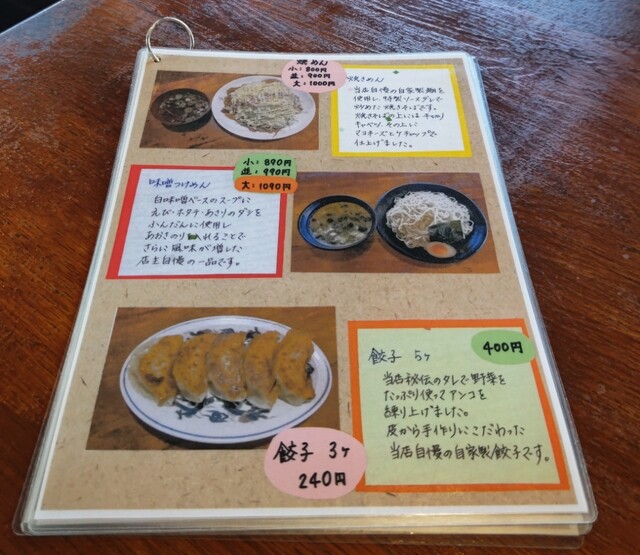 焼めん
小:800円
並:900円
大:1000円
焼きめん
当店自慢の自家製麺を
使用し、特製ソースダレで
炒めた焼きそばです。
焼きそばの上には キャベツ、その上に
マヨネーズとケチャップで
仕上げました。
小:890円
並:990円
大:1090円
味噌つけめん
白味噌ベースのスープに
えび・ホタテ・あさりのダシを
ふんだんに使用し
あおさのり入れることで
さらに風味が増した
店主自慢の一品です。
餃子 5ヶ
400円
当店秘伝のタレで野菜を
たっぷり使ってアンコを
練り上げました。
皮から手作りにこだわった
当店自慢の自家製餃子です。
餃子 3ヶ
240円